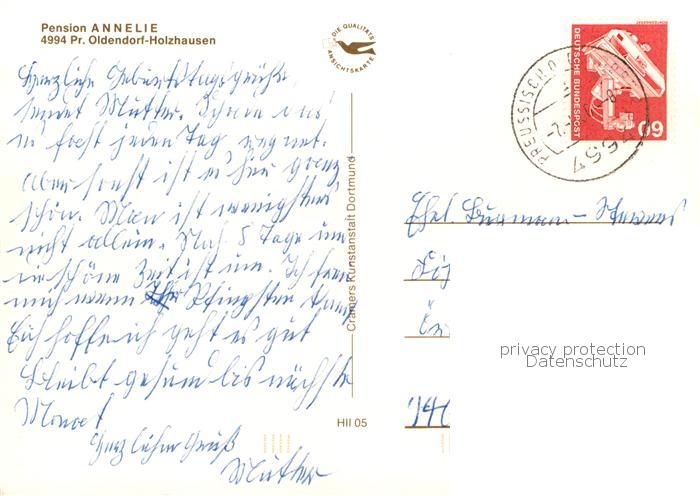 Pension ANNELIE
4994 Pr. Oldendorf-Holzhausen
DIE QUALITÄTS
ANSICHTSKARTE
Herzliche Geburtstagsgrüße
sendet Mutter. Schade das
es fast jeden Tag regnet.
Aber sonst ist es hier ganz
schön. Man ist wenigstens
nicht allein. Noch 5 Tage um
die schöne Zeit ist um. Ich freu
mich wenn Pfingsten
Euch hoffe ich geht es gut
Bleibt gesund bis nächste
Monat
Herzlichen Gruß
Mutter
Cramers Kunstanstalt Dortmund
HII 05
DEUTSCHE BUNDESPOST
60
PREUSSISCH O
privacy protection
Datenschutz